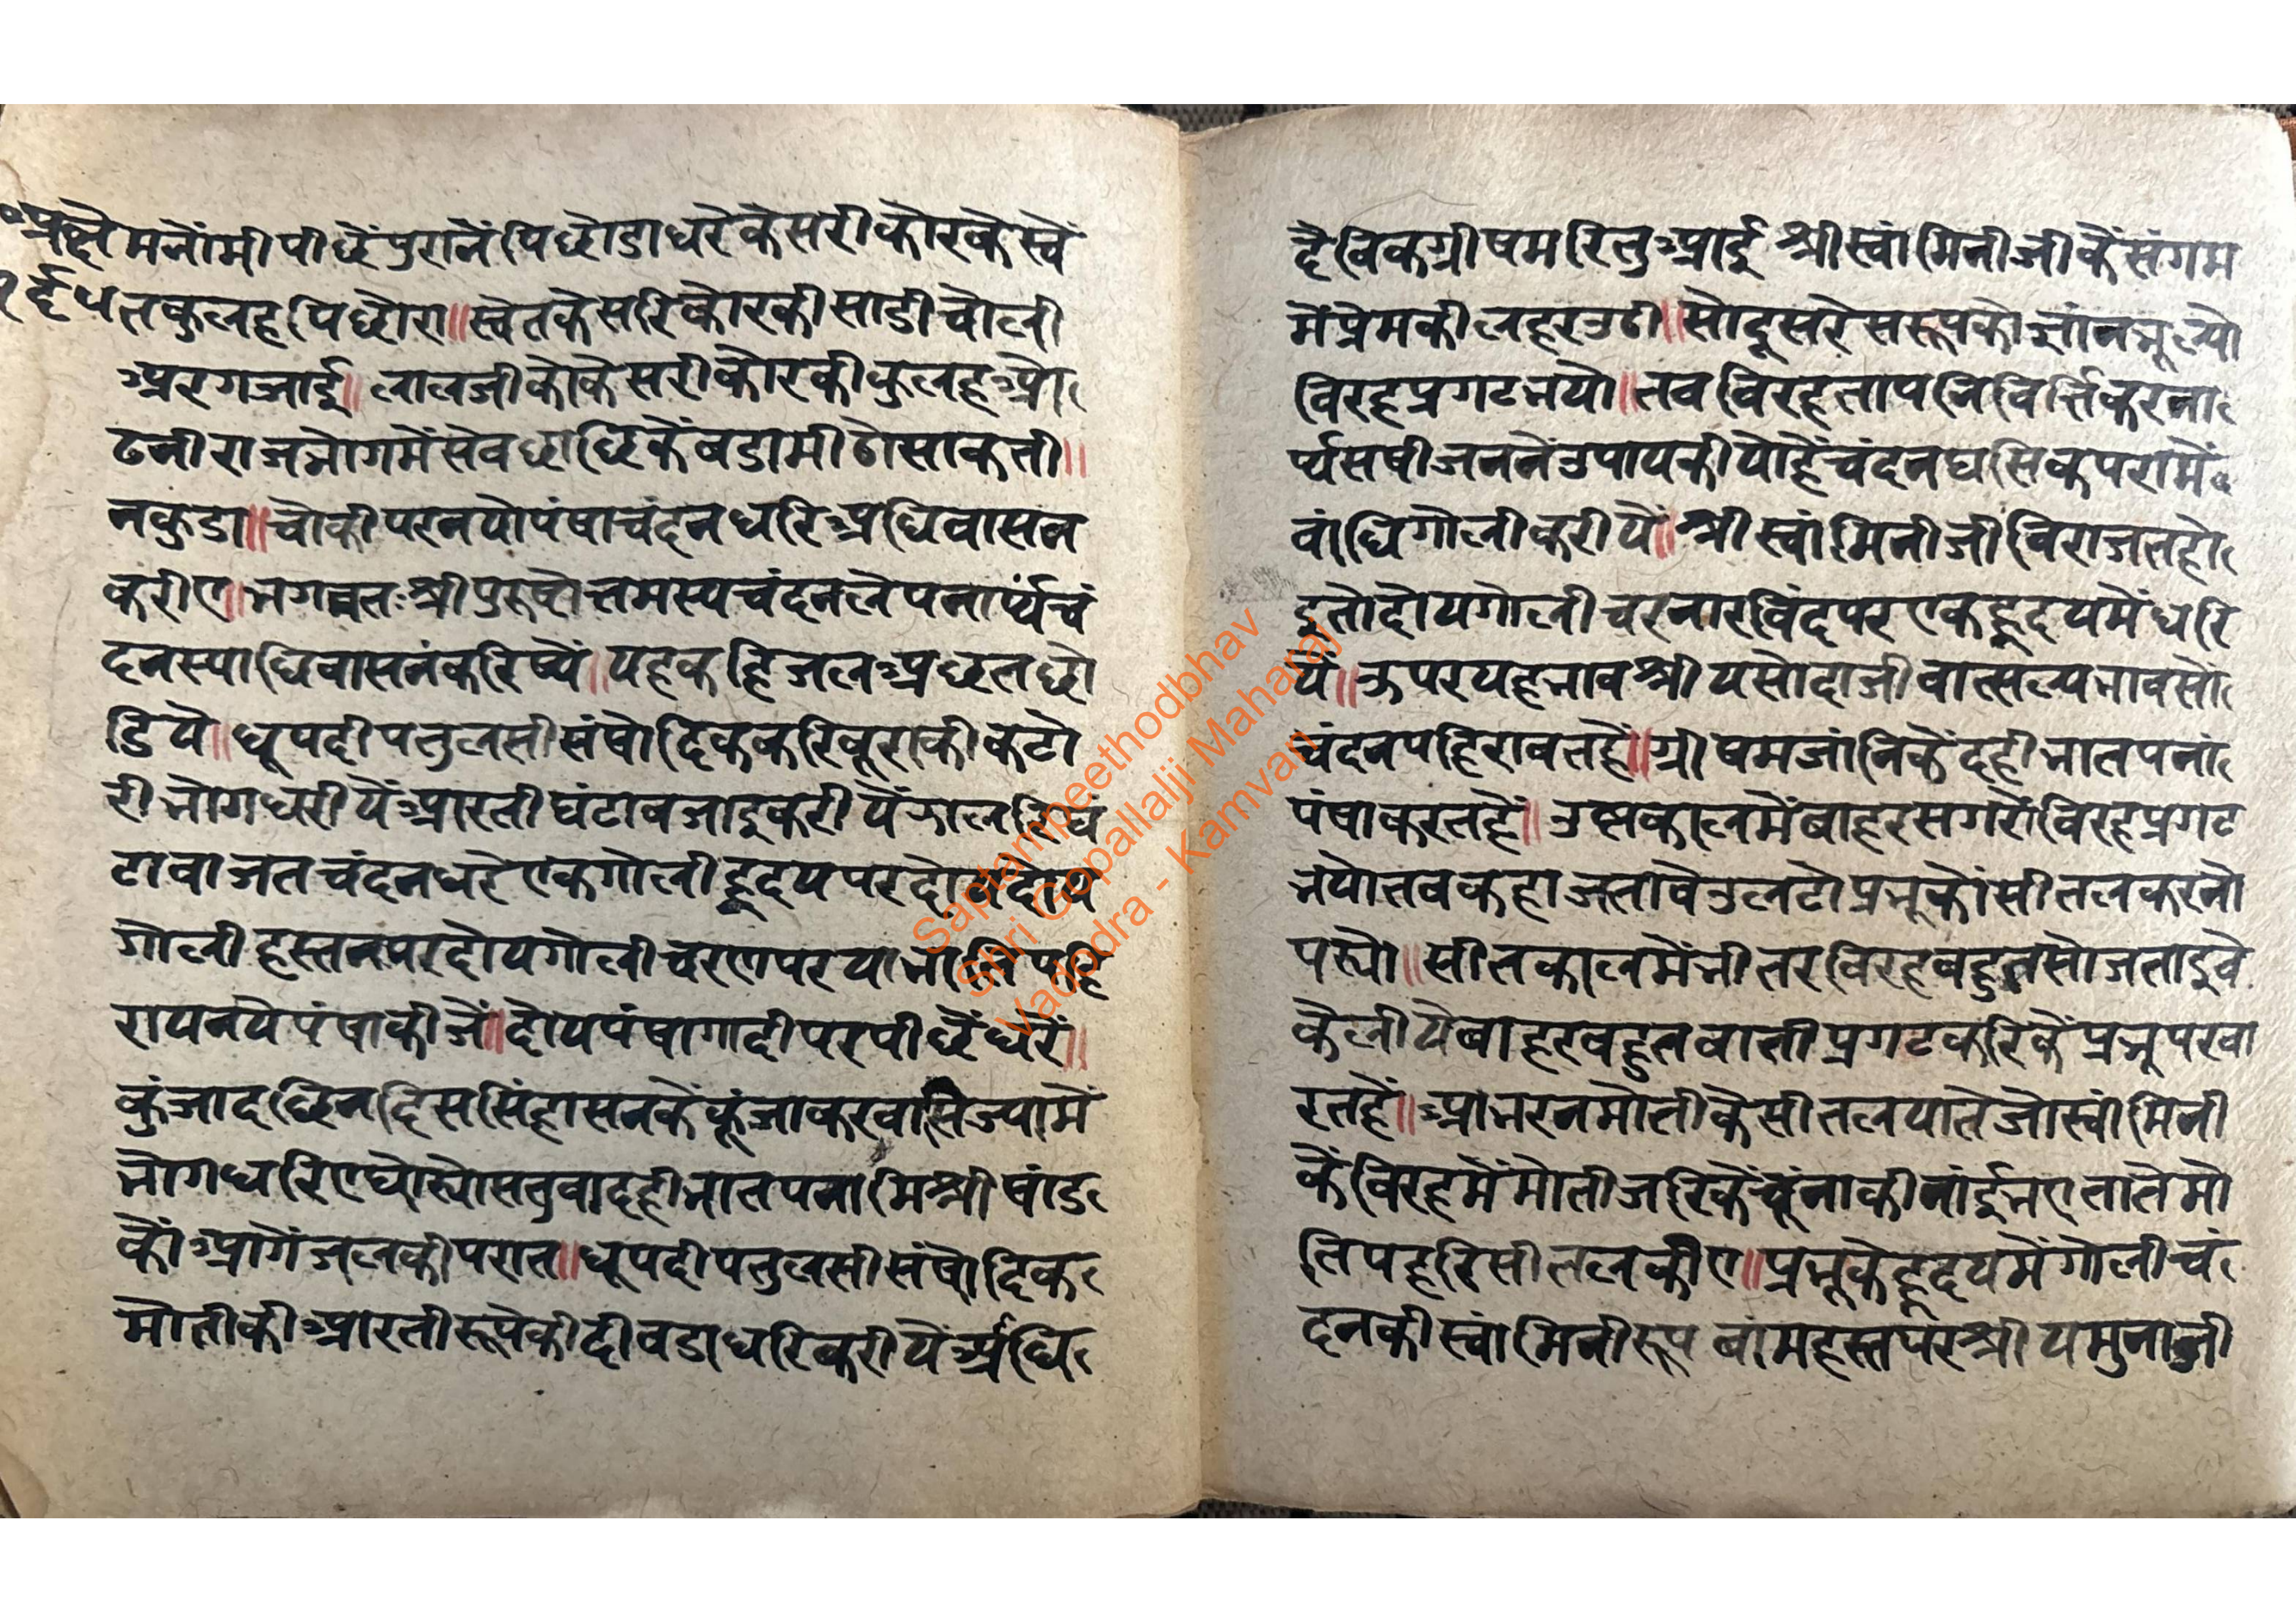 मनोंमी पीछें पुरानें पिछोडा धरे केसरी कोर के स्वे
त कुलह पिछौरा॥ स्वेत केसरि कोर की साडी चोली
अरगजाई॥ लालजी को केसरी कोर की कुलह ओ
ढनी राजभोग में सेव छाछि के बडा मीठो साक ती॥
नकुडा॥ चौकी पर नयो पंषा चंदन धरि अधिवासन
करीए॥ भगवतः श्री पुरुषोत्तमस्य चंदनलेपनार्थं चं
दनस्याधिवासनं करिष्ये॥ यह कहि जल अछत छो
डिये॥ धूप दीप तुलसी संषोदिक करि बूरा की कटो
री भोग धरीयें आरती घंटा बजाइ करीयें झालरि घं
टा बाजत चंदन धरे एक गोली हृदय पर दोय
गोली हस्तन पर दोय गोली चरण पर या भांति पहि
राय नये पंषा कीजें॥ दोय पंषा गादी पर पीछें धरें॥
कुंजा दछिन दिस सिंहासन कें कूंजा करवा सिज्या में
भोग धरिए घोरयो सतुवा दही भात पना मिश्री षांड
कों आगें जल की परात॥ धूप दीप तुलसी संषोदिक
मोती की आरती रूपे की दीवडा धरि करीयें अधि
दैविक ग्रीषम रितु आई श्री स्वांमिनीजी कें संगम
में प्रेम की लहर उठी॥ सो दूसरे सरूप को ज्ञांन भूल्यो
विरह प्रगट भयो॥ तब विरह ताप निवित्तिं करना
र्थ्य सषीजननें उपाय कीयो हैं चंदन घसि कपरा में
बांधि गोली करी यें॥ श्री स्वांमिनीजी विराजत हो
इ तो दोय गोली चरनारविंद पर एक हृदय में धरि
यें॥ ऊपर यह भाव श्री यसोदाजी वात्सल्य भाव सों
चंदन पहिरावत हें॥ ग्रीषम जांनि कें दही भात पनां
पंषा करत हें॥ उष्नकाल में बाहर सगरों विरह प्रगट
भयो तब कहा जतावे उलटो प्रभू कों सीतल करनो
परयो॥ सीतकाल में भीतर विरह बहुत सो जताइवे
के लीये बाहर बहुत बाती प्रगट करि कें प्रभु पर वा
रत हें॥ आभरन मोती के सीतल याते जो स्वांमिनी
कें विरह में मोती जरि कें चूंना की नांई भए ताते मो
ति पहरि सीतल कीए॥ प्रभू के हृदय में गोली चं
दन की स्वांमिनी रूप बांम हस्त पर श्री यमुनाजी
Saptampeethodbhav
Shri Gopallalji Maharaj
Vadodra - Kamvan